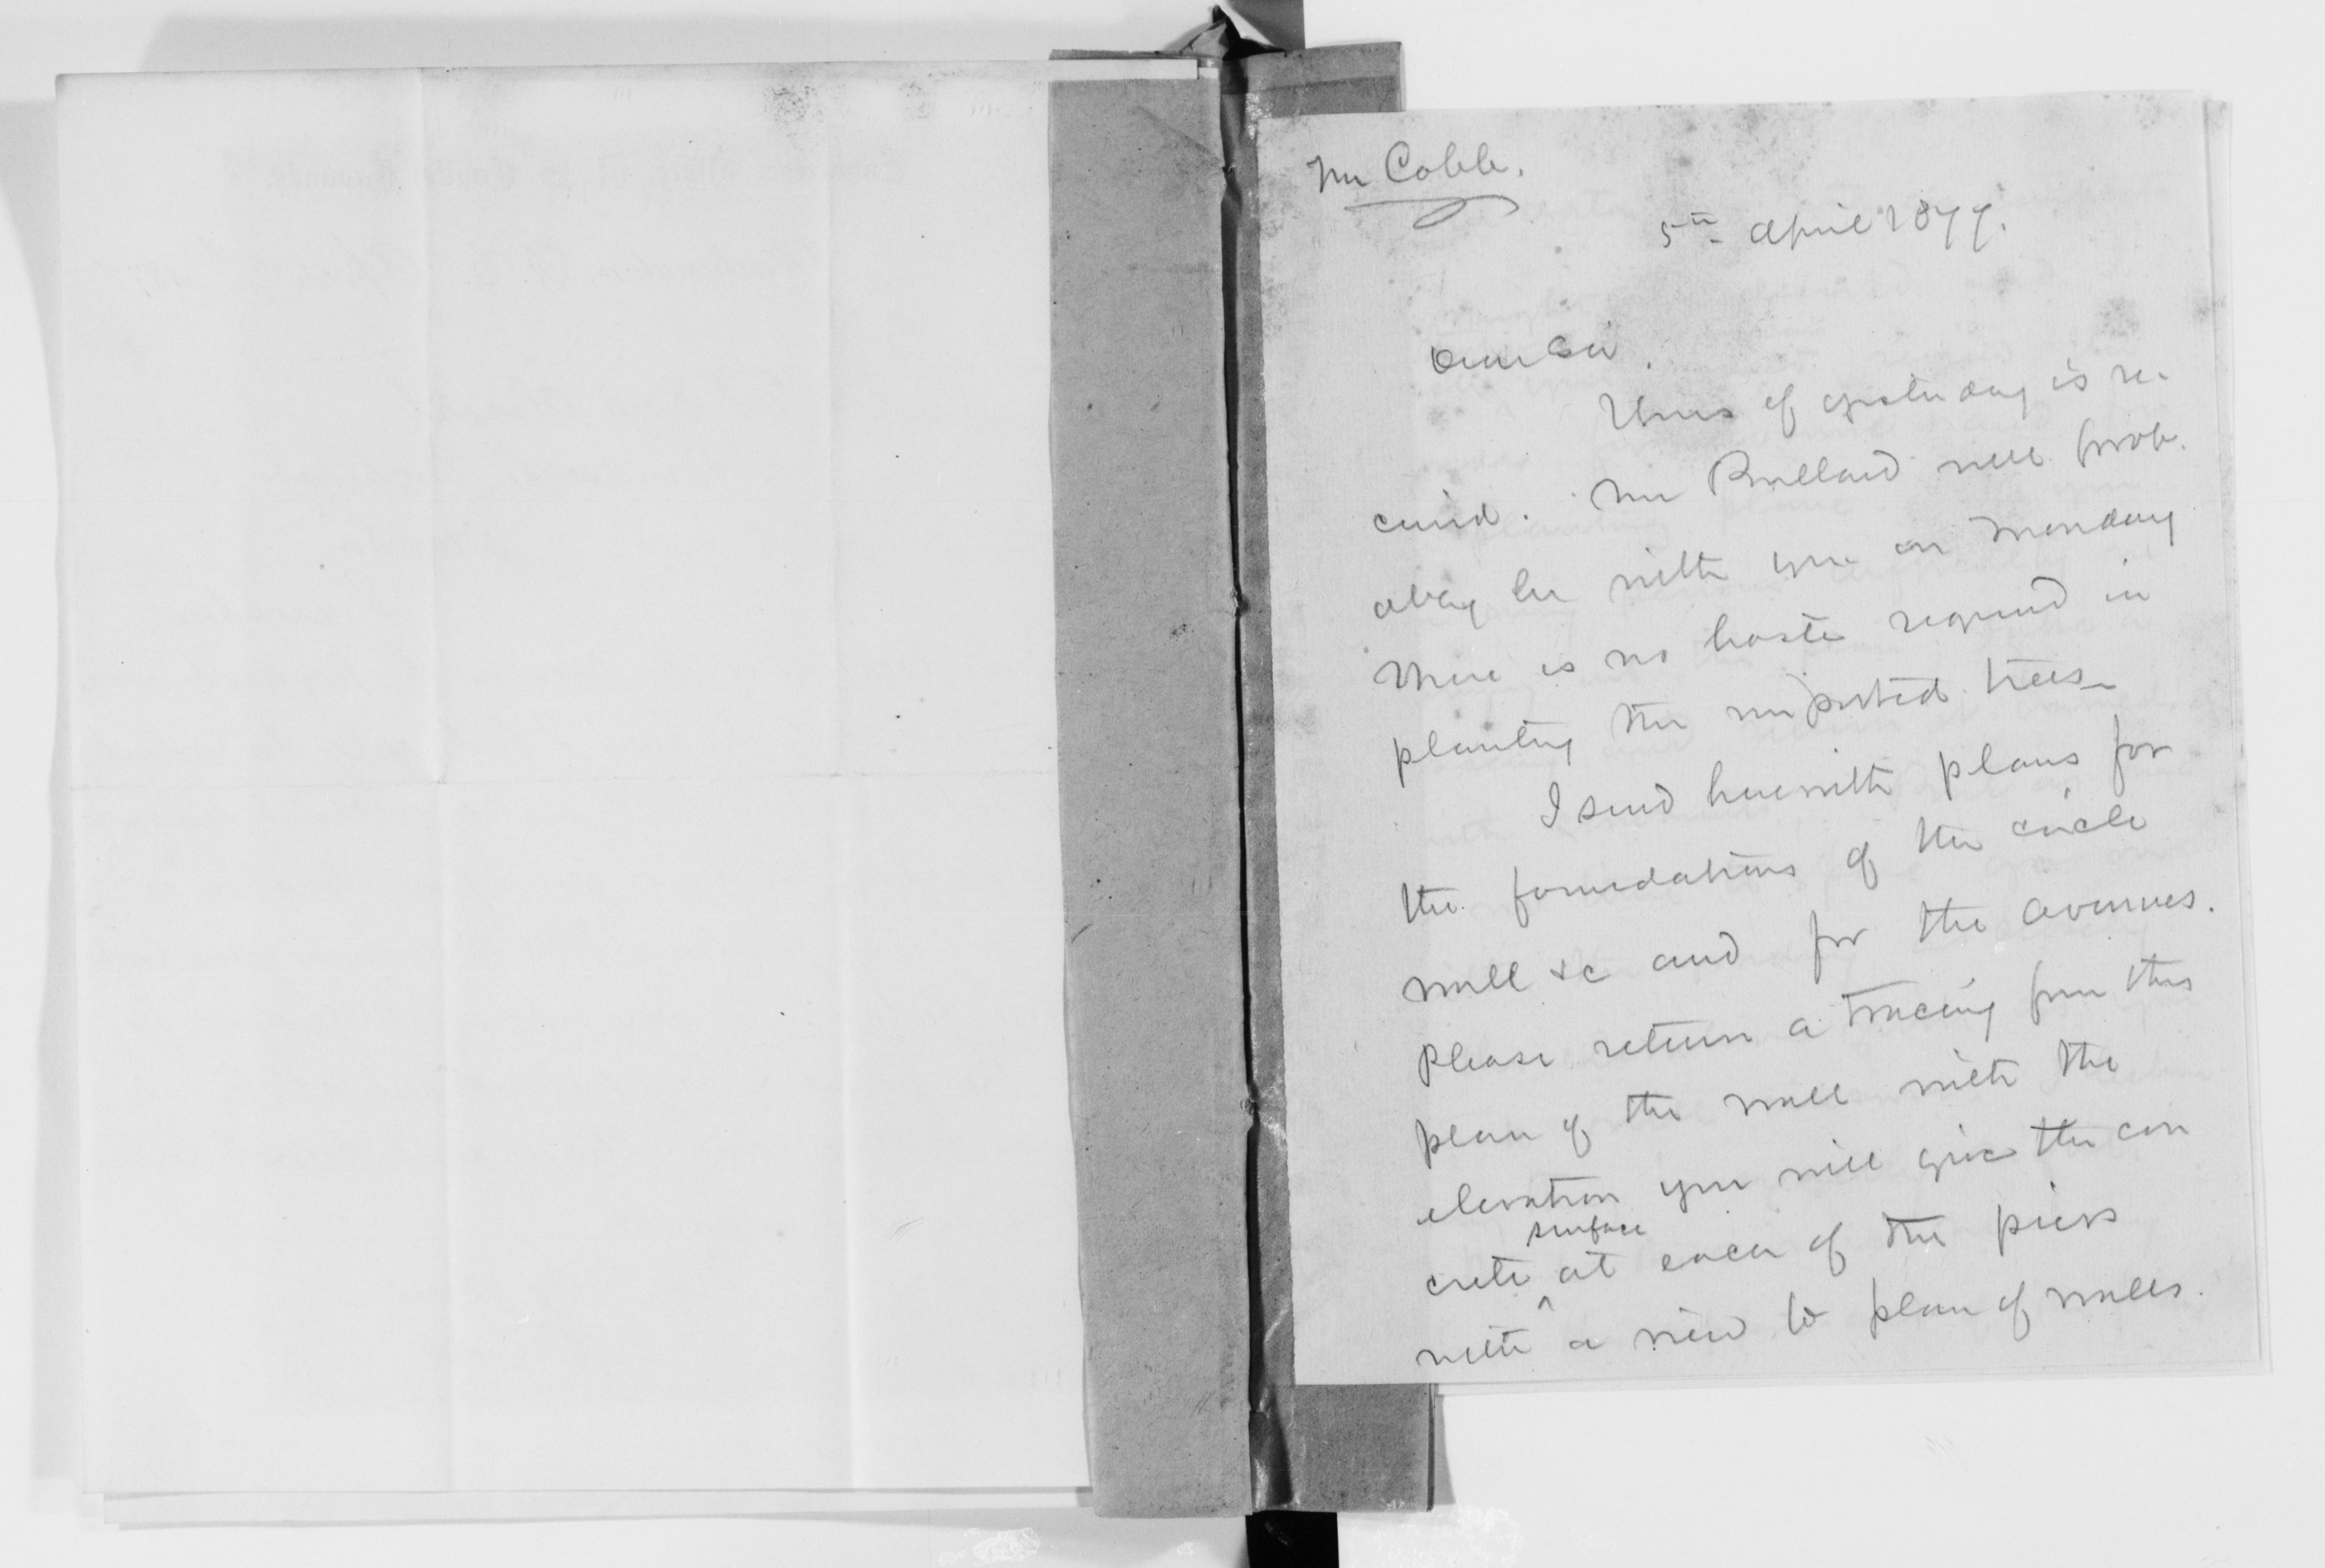 Mr Cobb.
5th April 1877.
Dear Sir,
Yours of yesterday is re-
ceived. Mr Bullard will prob-
ably be with you on Monday
There is no haste required in
planting the imported trees—
I send herewith plans for
the foundations of the circle
wall &c and for the avenues.
Please return a tracing from this
plan of the wall with the
elevation you will give the con
surface
crete ^ at each of the piers
with a view to plan of walls.